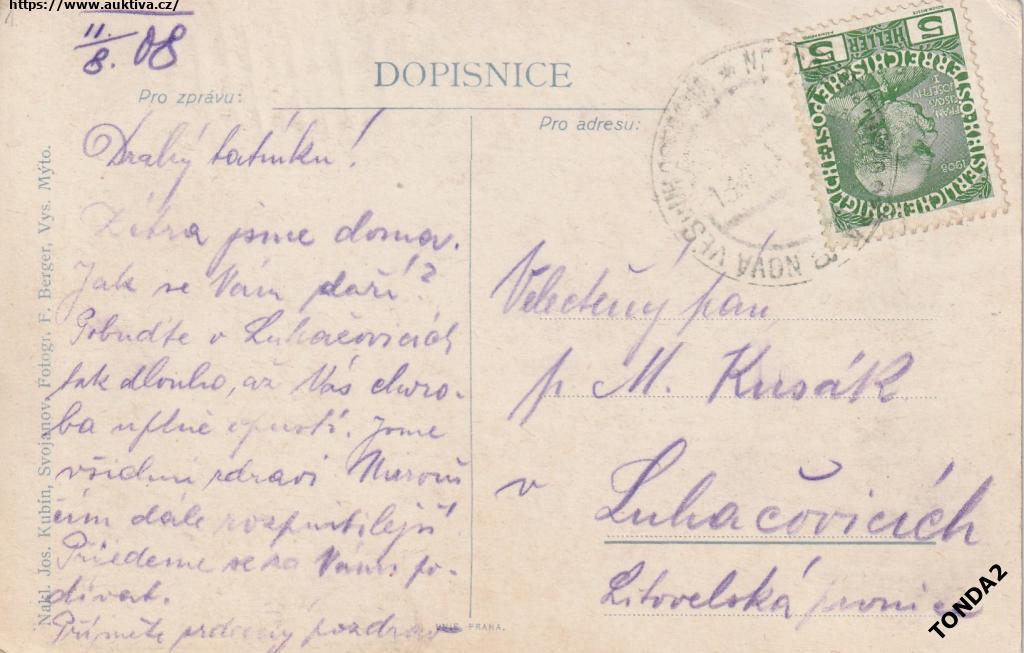 https://www.auktiva.cz/
11./8. 08
DOPISNICE
Pro zprávu:
Pro adresu:
Drahý tatínku!
Zítra jsme doma.
Jak se Vám daří?
Pobuďte v Luhačovicích
tak dlouho, až Vás choro-
ba uplně opustí. Jsme
všichni zdraví
čím dále rozpustilejší
Přijedeme se na Vás po-
dívat.
Přijměte srdečný pozdrav
Velectěný pan
p M. Kusák
v Luhačovicích
Litovelská pivnice
Nakl. Jos. Kubín, Svojanov. Fotogr. F. Berger, Vys. Mýto.
UNIE PRAHA.
5 HELLER 5
KAISERLICHE KÖNIGLICHE ÖSTERREICHISCHE POST
1908
NOVÁ VES
TONDA2